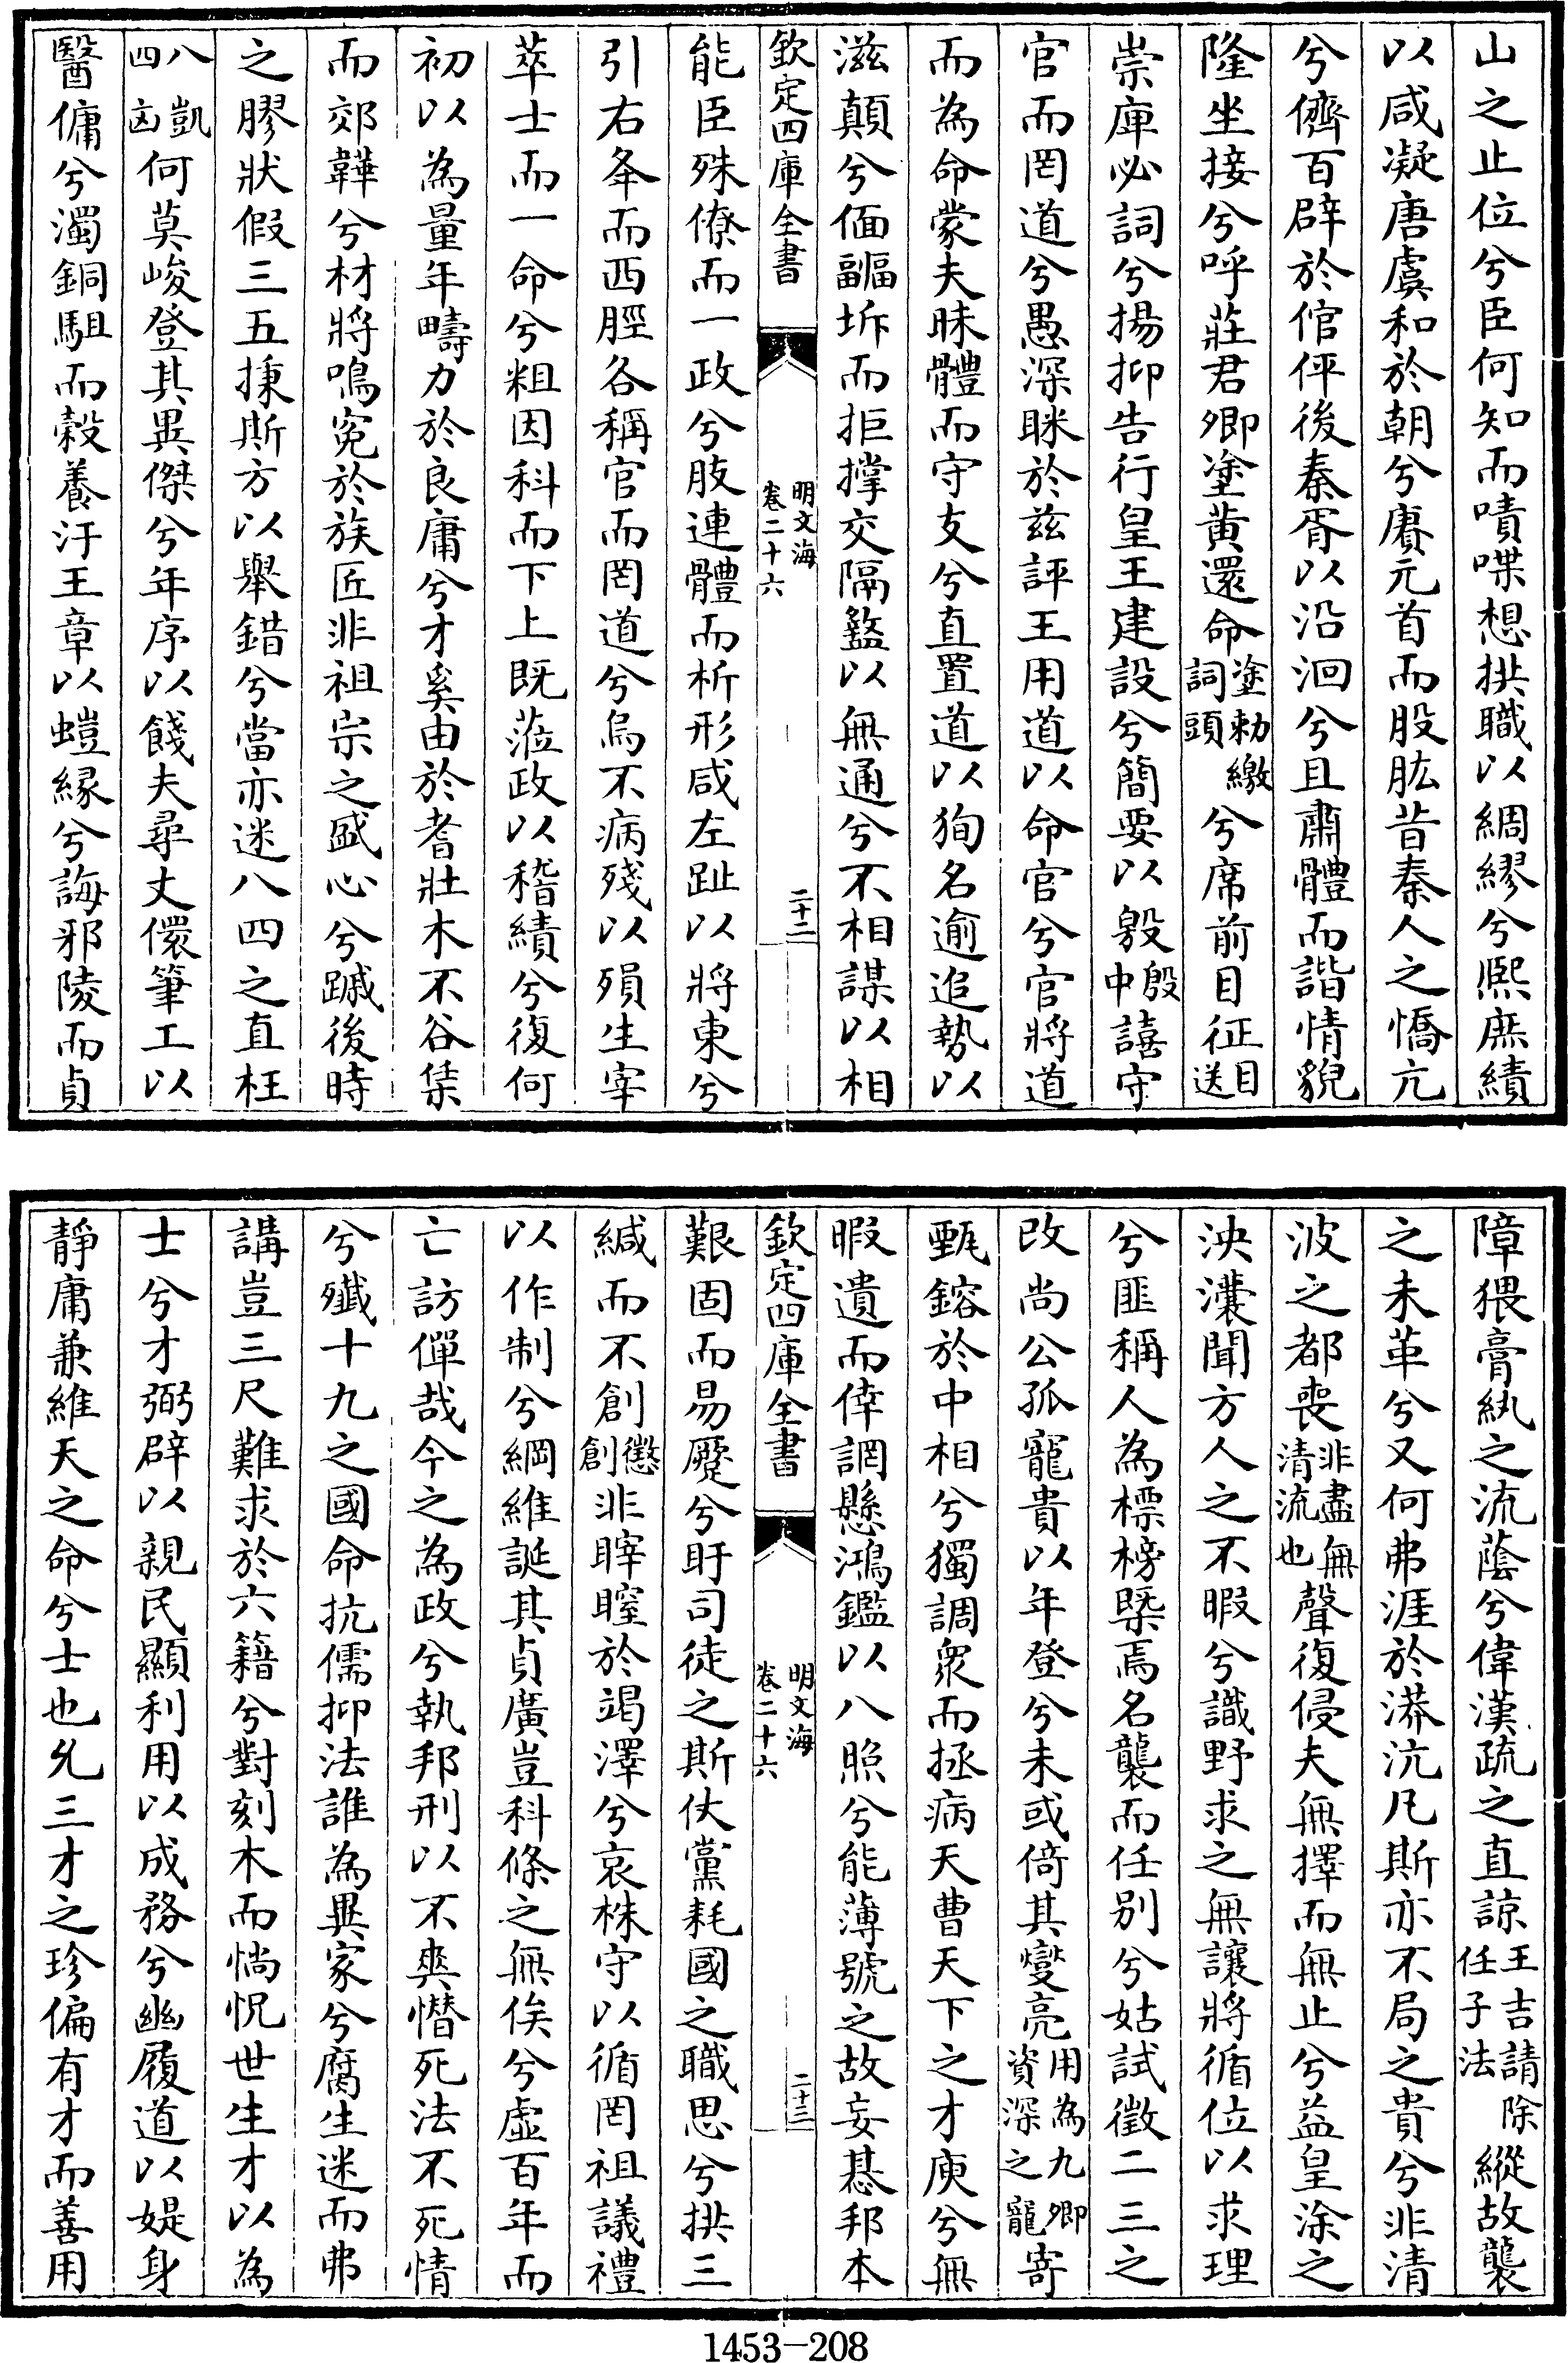 山之止位兮臣何知而嘖喋想拱職以綢繆兮熙庶績
以咸凝唐虞和於朝兮賡元首而股肱昔秦人之憍亢
兮儕百辟於倌伻後秦胥以沿洄兮且肅體而諧情貌
隆坐接兮呼莊君卿塗黄還命塗勅繳詞頭兮席前目征目送
崇庳必詞兮揚抑告行皇王建設兮簡要以㲇殷中譆守
官而罔道兮愚深眯於兹評王用道以命官兮官將道
而為命蒙夫昧體而守支兮直置道以狥名逾追勢以
滋顛兮偭諨坼而拒撑交隔盭以無通兮不相謀以相
欽定四庫全書
明文海
卷二十六
二十二
能臣殊僚而一政兮肢連體而析形咸左趾以將東兮
引右夅而西脛各稱官而罔道兮烏不病殘以殞生宰
萃士而一命兮粗因科而下上既蒞政以稽績兮復何
初以為量年疇力於良庸兮才奚由於耆壯木不谷㮣
而郊韡兮材將鳴寃於族匠非祖宗之盛心兮踧後時
之膠狀假三五㨂斯方以舉錯兮當亦迷八四之直枉
八凱四凶何莫峻登其異傑兮年序以餞夫尋丈儇筆工以
醫傭兮濁銅駔而榖養汙王章以螘縁兮誨邪陵而貞
障猥膏紈之流蔭兮偉漢疏之直諒王吉請除任子法縱故襲
之未革兮又何弗涯於漭沆凡斯亦不局之貴兮非清
波之都喪非盡無清流也聲復侵夫無擇而無止兮益皇涂之
泱瀼聞方人之不暇兮識野求之無讓將循位以求理
兮匪稱人為標榜槩焉名襲而任别兮姑試徵二三之
攺尚公孤寵貴以年登兮未或倚其燮亮用為九卿資深之寵寄
甄鎔於中相兮獨調衆而拯病天曹天下之才庾兮無
暇遺而倖調懸鴻鑑以八照兮能薄號之故妄惎邦本
欽定四庫全書
明文海
卷二十六
二十三
艱固而易蹷兮盱司徒之斯仗黨耗國之職思兮拱三
緘而不創懲創非睟瞠於竭澤兮哀株守以循罔祖議禮
以作制兮綱維誕其貞廣豈科條之無俟兮虛百年而
亡訪僤哉今之為政兮執邦刑以不爽憯死法不死情
兮殲十九之國命抗儒抑法誰為異家兮腐生迷而弗
講豈三尺難求於六籍兮對刻木而惝怳世生才以為
士兮才弼辟以親民顯利用以成務兮幽履道以媞身
靜庸兼維天之命兮士也允三才之珍偏有才而善用
1453-208